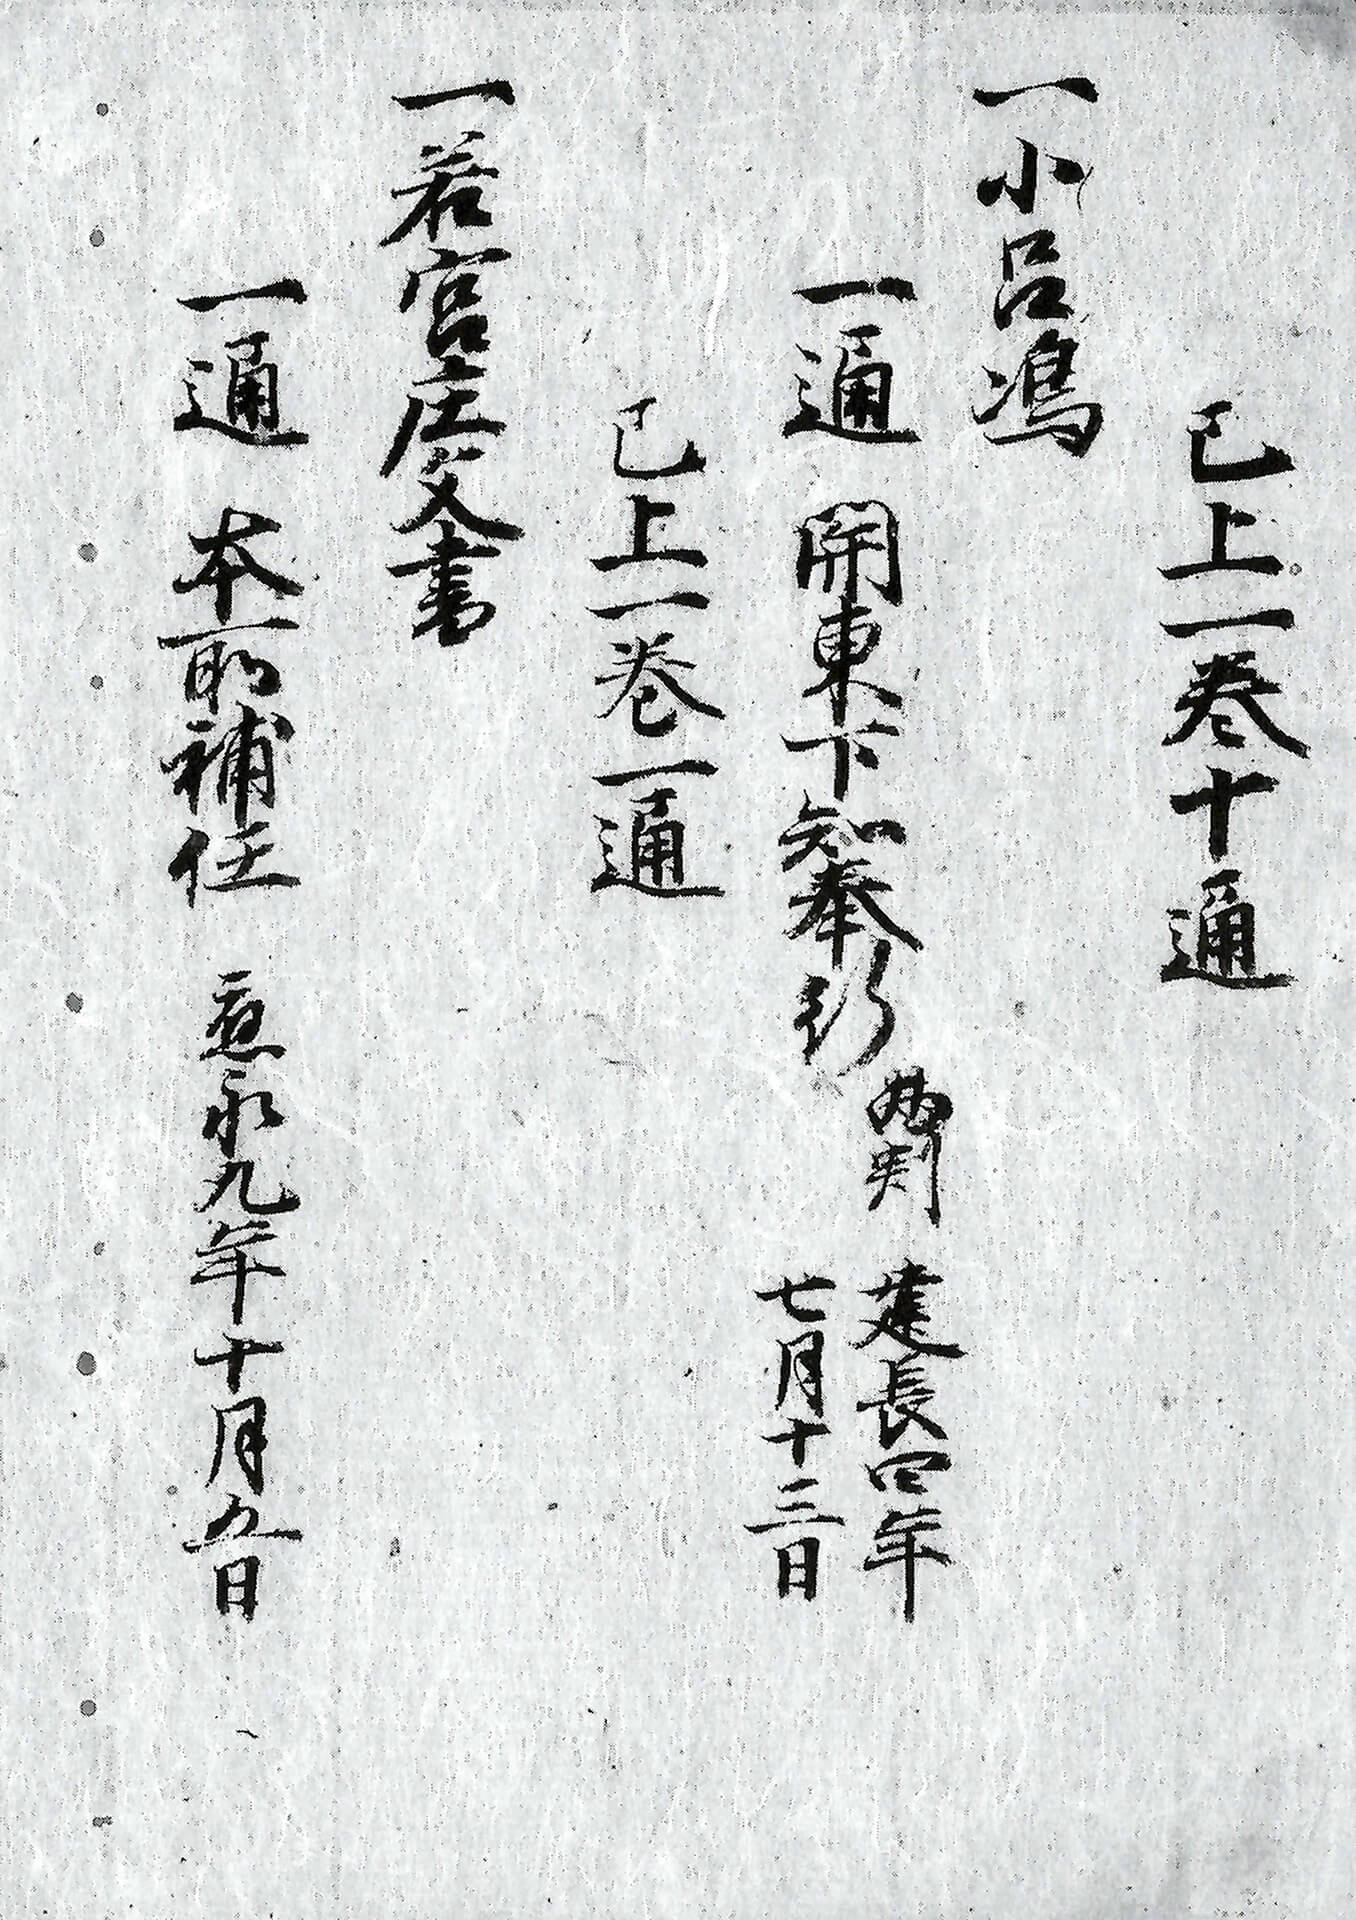 已上一巻十通
一小呂嶋
一通 関東下知奉行両判 建長四年
七月十二日
已上一巻一通
一若宮庄文書
一通 本所補任 應永九年十月九日